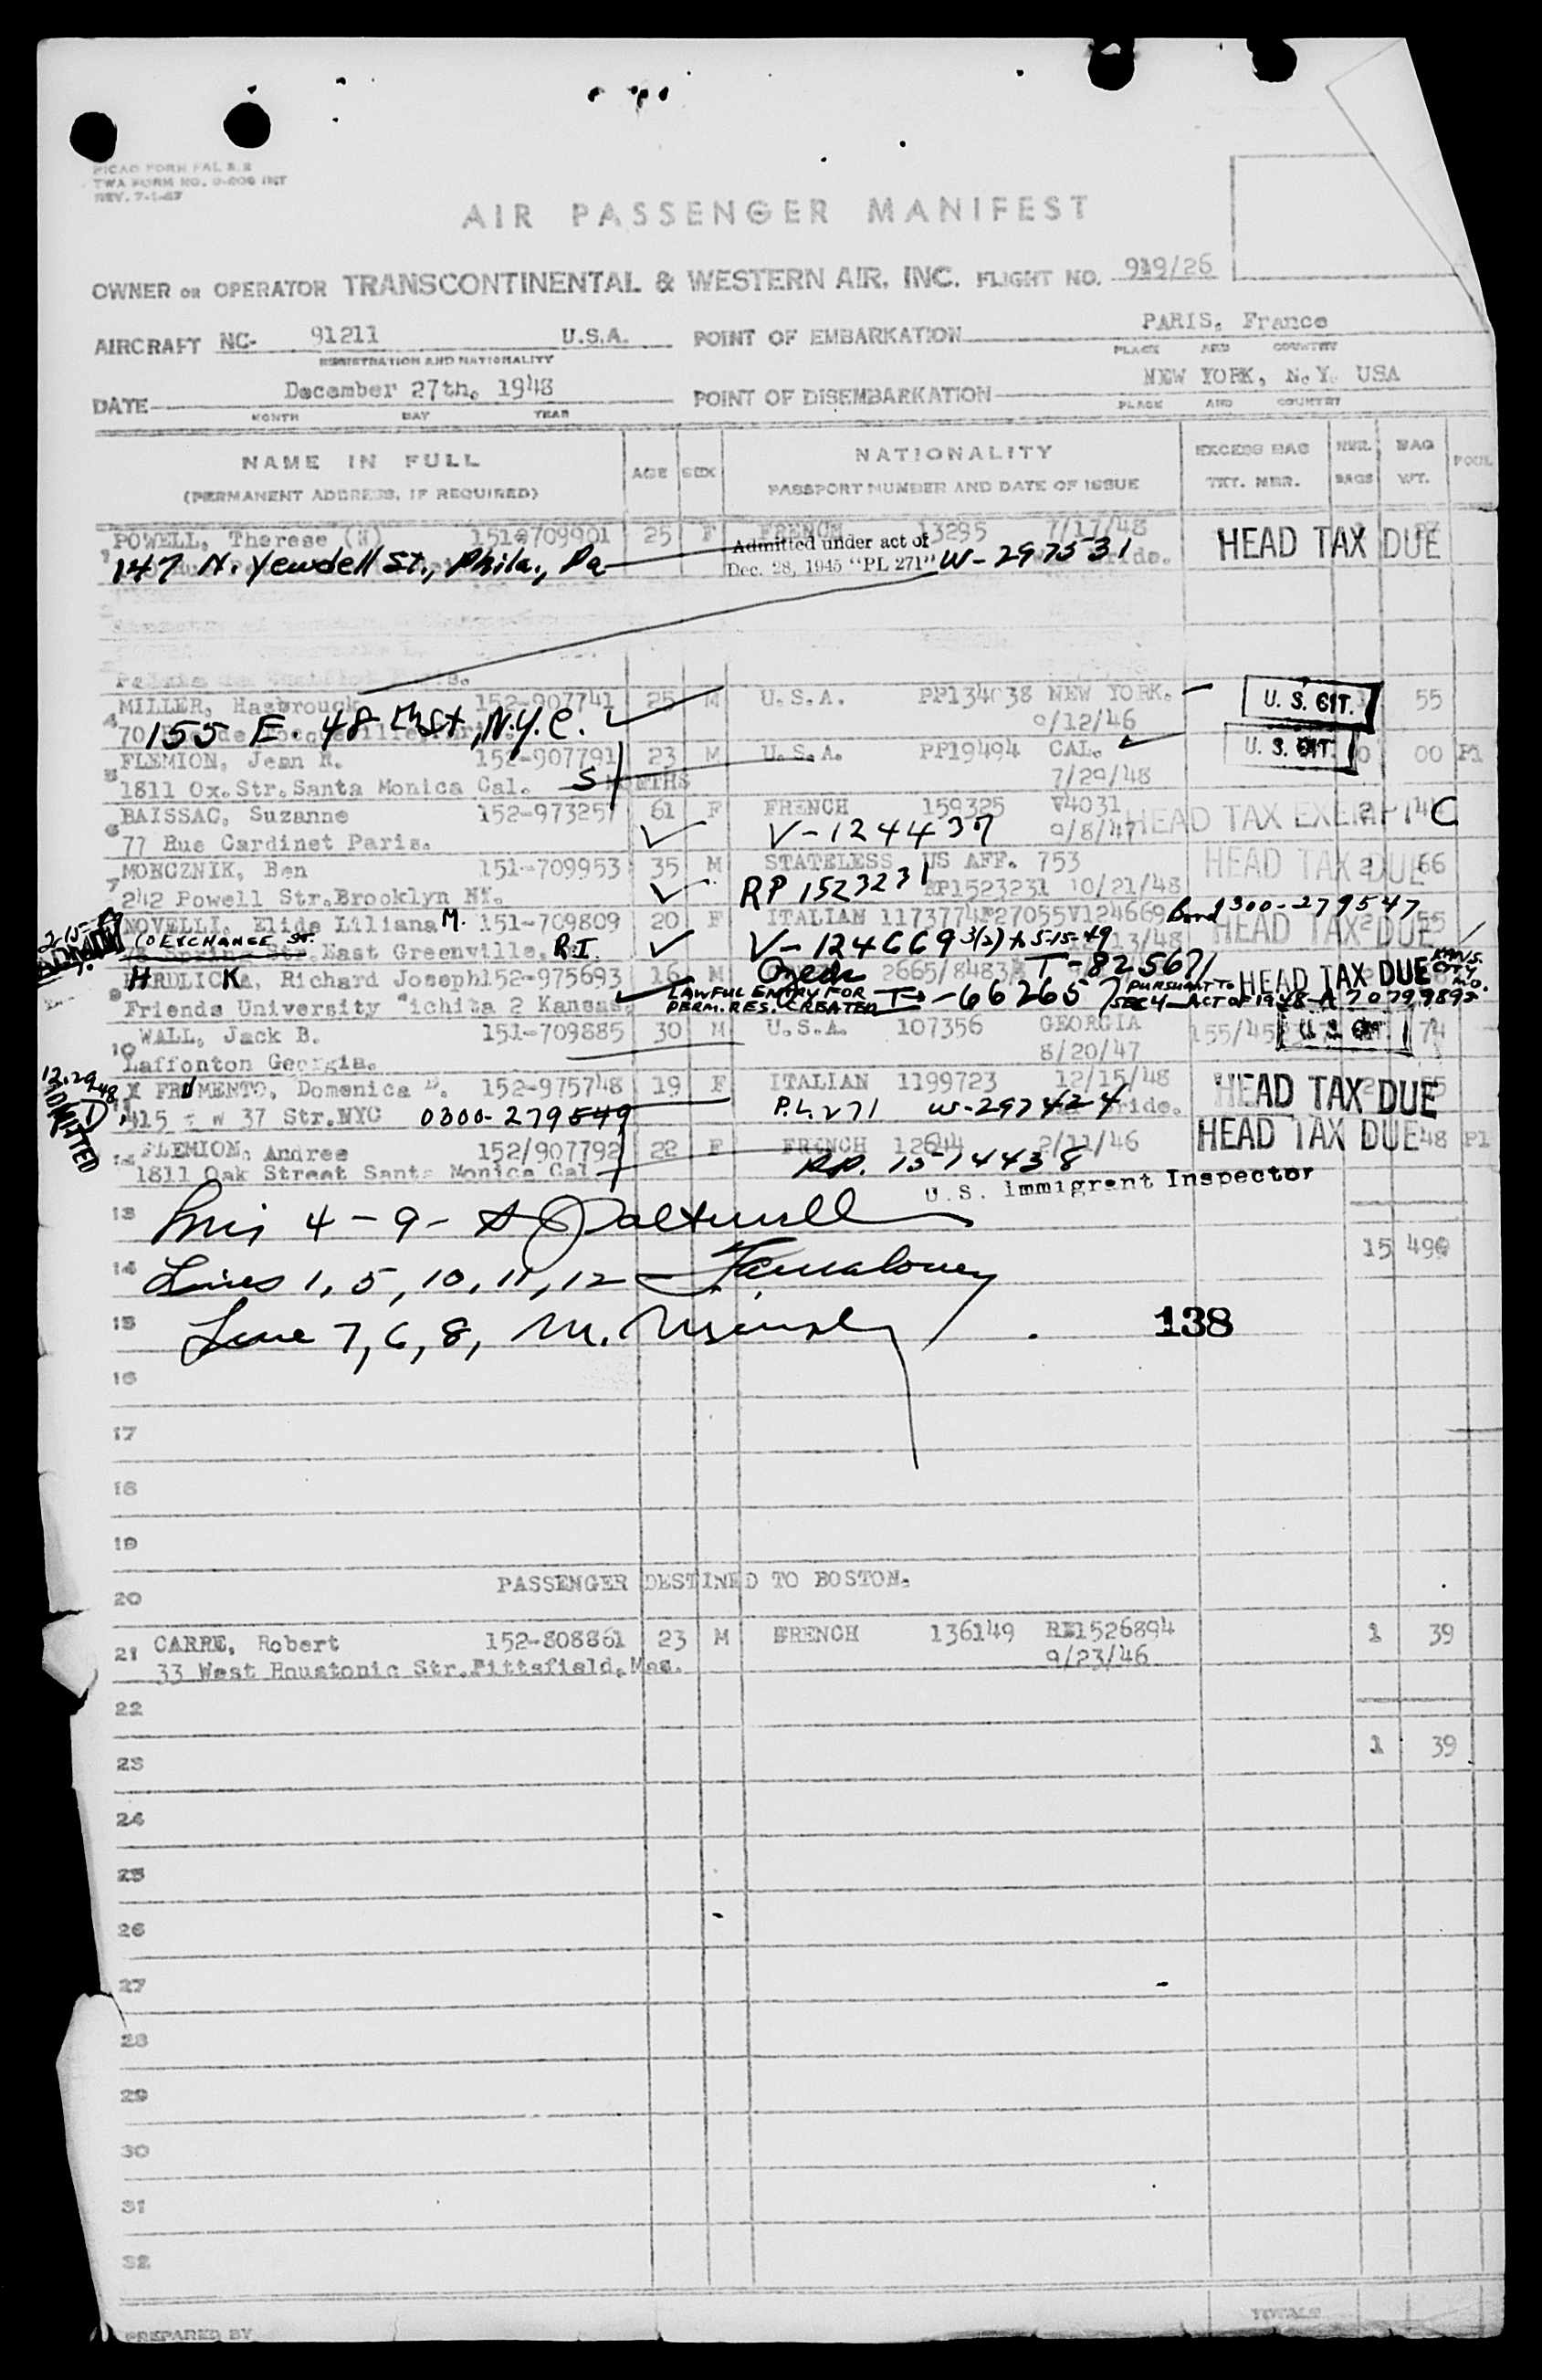 PICAO FORM FAL 2.2
TWA FORM NO. O-206 INT
REV. 7-1-47
AIR PASSENGER MANIFEST
OWNER OR OPERATOR TRANSCONTINENTAL & WESTERN AIR, INC. FLIGHT NO. 919/26
AIRCRAFT NC- 91211 U.S.A. POINT OF EMBARKATION PARIS, France
REGISTRATION AND NATIONALITY PLACE AND COUNTRY
DATE December 27th, 1948 POINT OF DISEMBARKATION NEW YORK, N.Y. USA
MONTH DAY YEAR PLACE AND COUNTRY
NAME IN FULL AGE SEX NATIONALITY EXCESS BAG NBR. BAG
(PERMANENT ADDRESS, IF REQUIRED) PASSPORT NUMBER AND DATE OF ISSUE TKT. NBR. BAGS WT.
POWELL, Therese (N) 151-709901 25 F FRENCH 13295 7/17/48 HEAD TAX DUE
147 N. Yewdell St., Phila., Pa Admitted under act of Dec. 28, 1945 "PL 271" W-297531
MILLER, Hasbrouck 152-907741 25 M U.S.A. PP134038 NEW YORK. U. S. CIT. 55
155 E. 48th St, N.Y.C. 9/12/46
5 FLEMION, Jean R. 152-907791 23 M U.S.A. PP19494 CAL. U. S. CIT. 0 00 P1
1811 Ox. Str. Santa Monica Cal. 7/29/48
6 BAISSAC, Suzanne 152-973257 61 F FRENCH 159325 V4031 HEAD TAX EXEMPT C
77 Rue Cardinet Paris. V-124437 9/8/47
7 MONCZNIK, Ben 151-709953 35 M STATELESS US AFF. 753 HEAD TAX DUE 2 66
242 Powell Str. Brooklyn NY. RP 1523231 RP1523231 10/21/48
NOVELLI, Elide Liliana M. 151-709809 20 F ITALIAN 1173774 V124669 Bond 0300-279547 HEAD TAX DUE 2 55
EXCHANGE St. East Greenville, R.I V-124669 3(2) to 5-15-49
9 HRDLICKA, Richard Joseph 152-975693 16 M Czech 2665/8483 T-825671 HEAD TAX DUE KANS. CITY MO.
Friends University Wichita 2 Kansas. LAWFUL ENTRY FOR PERM. RES. CREATED T-662657 PURSUANT TO SEC 4-ACT OF 1948-A7079989
10 WALL, Jack B. 151-709885 30 M U.S.A. 107356 GEORGIA 155/45 U. S. CIT. 74
Laffonton Georgia. 8/20/47
12.29.48 ADMITTED
X FRUMENTO, Domenica D. 152-975748 19 F ITALIAN 1199723 12/15/48 HEAD TAX DUE
415 W 37 Str. NYC 0300-279549 P.L. 271 W-297424 bride.
12 FLEMION, Andree 152/907792 22 F FRENCH 12644 2/11/46 HEAD TAX DUE 48 P1
1811 Oak Street Santa Monica Cal. RP. 1574438
U.S. Immigrant Inspector
13 4-9-
14 Lines 1, 5, 10, 11, 12 15 490
15 Line 7, 6, 8, M. 138
16
17
18
19
20 PASSENGER DESTINED TO BOSTON.
21 CARRE, Robert 152-808861 23 M FRENCH 136149 RE1526894 1 39
33 West Housatonic Str. Pittsfield, Mas. 9/23/46
22
23 1 39
24
25
26
27
28
29
30
31
32
TOTALS
PREPARED BY